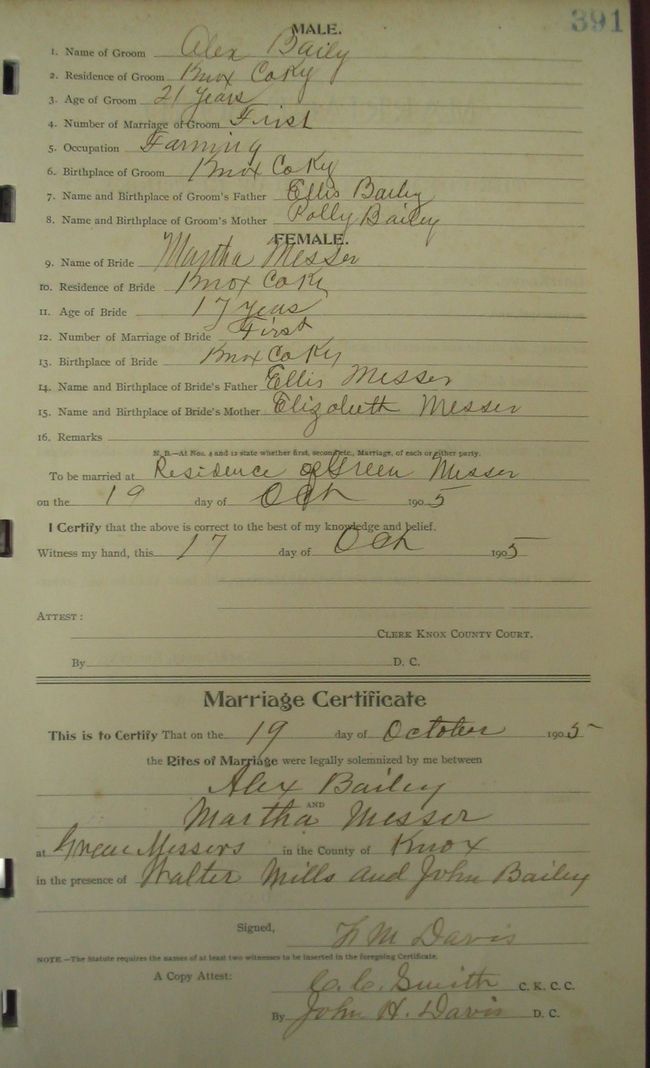 391
MALE.
1. Name of Groom Alex Baily
2. Residence of Groom Knox Co Ky
3. Age of Groom 21 years
4. Number of Marriage of Groom First
5. Occupation Farming
6. Birthplace of Groom Knox Co Ky
7. Name and Birthplace of Groom's Father Ellis Bailey
8. Name and Birthplace of Groom's Mother Polly Bailey
FEMALE.
9. Name of Bride Martha Messer
10. Residence of Bride Knox Co Ky
11. Age of Bride 17 years
12. Number of Marriage of Bride First
13. Birthplace of Bride Knox Co Ky
14. Name and Birthplace of Bride's Father Ellis Messer
15. Name and Birthplace of Bride's Mother Elizabeth Messer
16. Remarks
N. B.—At Nos. 4 and 12 state whether first, second, etc., Marriage, of each or either party.
To be married at Residence of Green Messer
on the 19 day of Oct 1905
I Certify that the above is correct to the best of my knowledge and belief.
Witness my hand, this 17 day of Oct 1905
ATTEST:
CLERK KNOX COUNTY COURT.
By D. C.
Marriage Certificate
This is to Certify That on the 19 day of October 1905
the Rites of Marriage were legally solemnized by me between
Alex Bailey
AND
Martha Messer
at Green Messers in the County of Knox
in the presence of Walter Mills and John Bailey
Signed, M Davis
NOTE.—The Statute requires the names of at least two witnesses to be inserted in the foregoing Certificate.
A Copy Attest: C. C. Smith C. K. C. C.
By John H. Davis D. C.